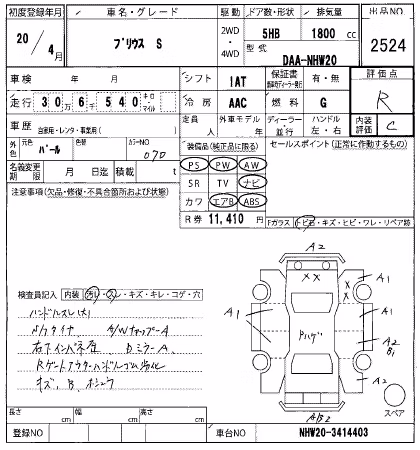 初度登録年月 車名・グレード 駆動 ドア数・形状 排気量 出品NO
20/4月 プリウス S 2WD・4WD 5HB 1800 cc 2524
型式 DAA-NHW20
車検 年 月 シフト 1AT 保証書 有・無 評価点
走行 30万6千540 キロ・マイル 冷房 AAC 燃料 G R
車歴 自家用・レンタ・事業用( ) 定員 人 外車モデル 年 ディーラー・並行 ハンドル 左・右 内装評価 C
外色 元色 パール 色替 カラーNO. 070
装備品(純正品に限る) セールスポイント(正常に作動するもの)
PS PW AW
名義変更期限 月 日迄 積載 t
SR TV ナビ
注意事項(欠品・修復・不具合箇所および状態)
カワ エアB ABS
R券 11,410 円
Fガラス トビ石・キズ・ヒビ・ワレ・リペア跡
A2
X X
A1 A1
検査員記入 内装 汚レ・スレ・キズ・キレ・コゲ・穴
ハンドルスレ(大)
A1 A2
B1
右下インパネ
Bミラー A
Rゲートアウターハンドルゴム劣化
キズ、B、
A2
AB2
スペア
長さ cm 幅 cm 高さ cm
登録NO 車台NO NHW20-3414403